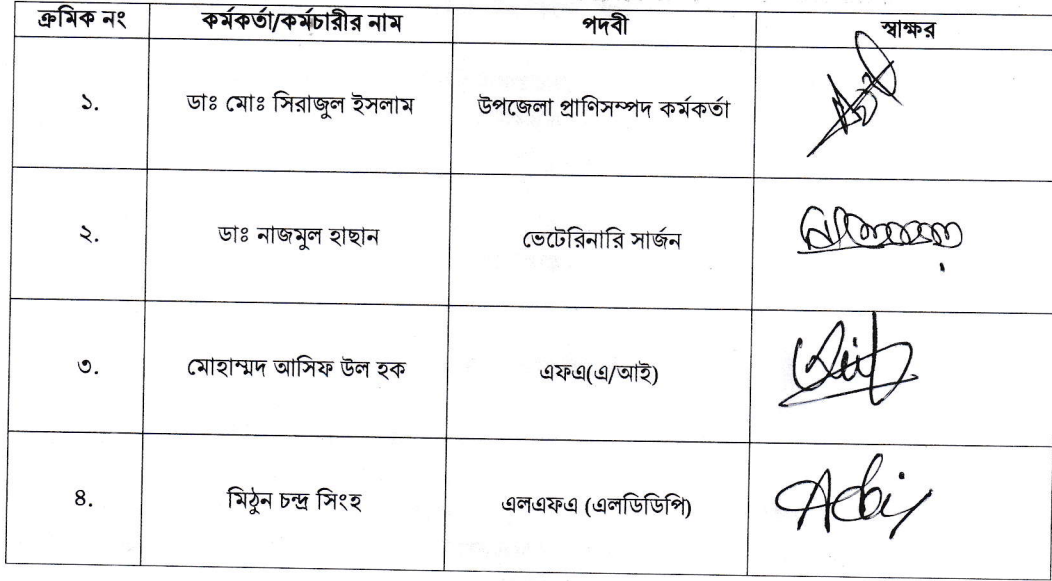 ক্রমিক নং কর্মকর্তা/কর্মচারীর নাম পদবী স্বাক্ষর
১. ডাঃ মোঃ সিরাজুল ইসলাম উপজেলা প্রাণিসম্পদ কর্মকর্তা
২. ডাঃ নাজমুল হাছান ভেটেরিনারি সার্জন
৩. মোহাম্মদ আসিফ উল হক এফএ(এ/আই)
৪. মিঠুন চন্দ্র সিংহ এলএফএ (এলডিডিপি)